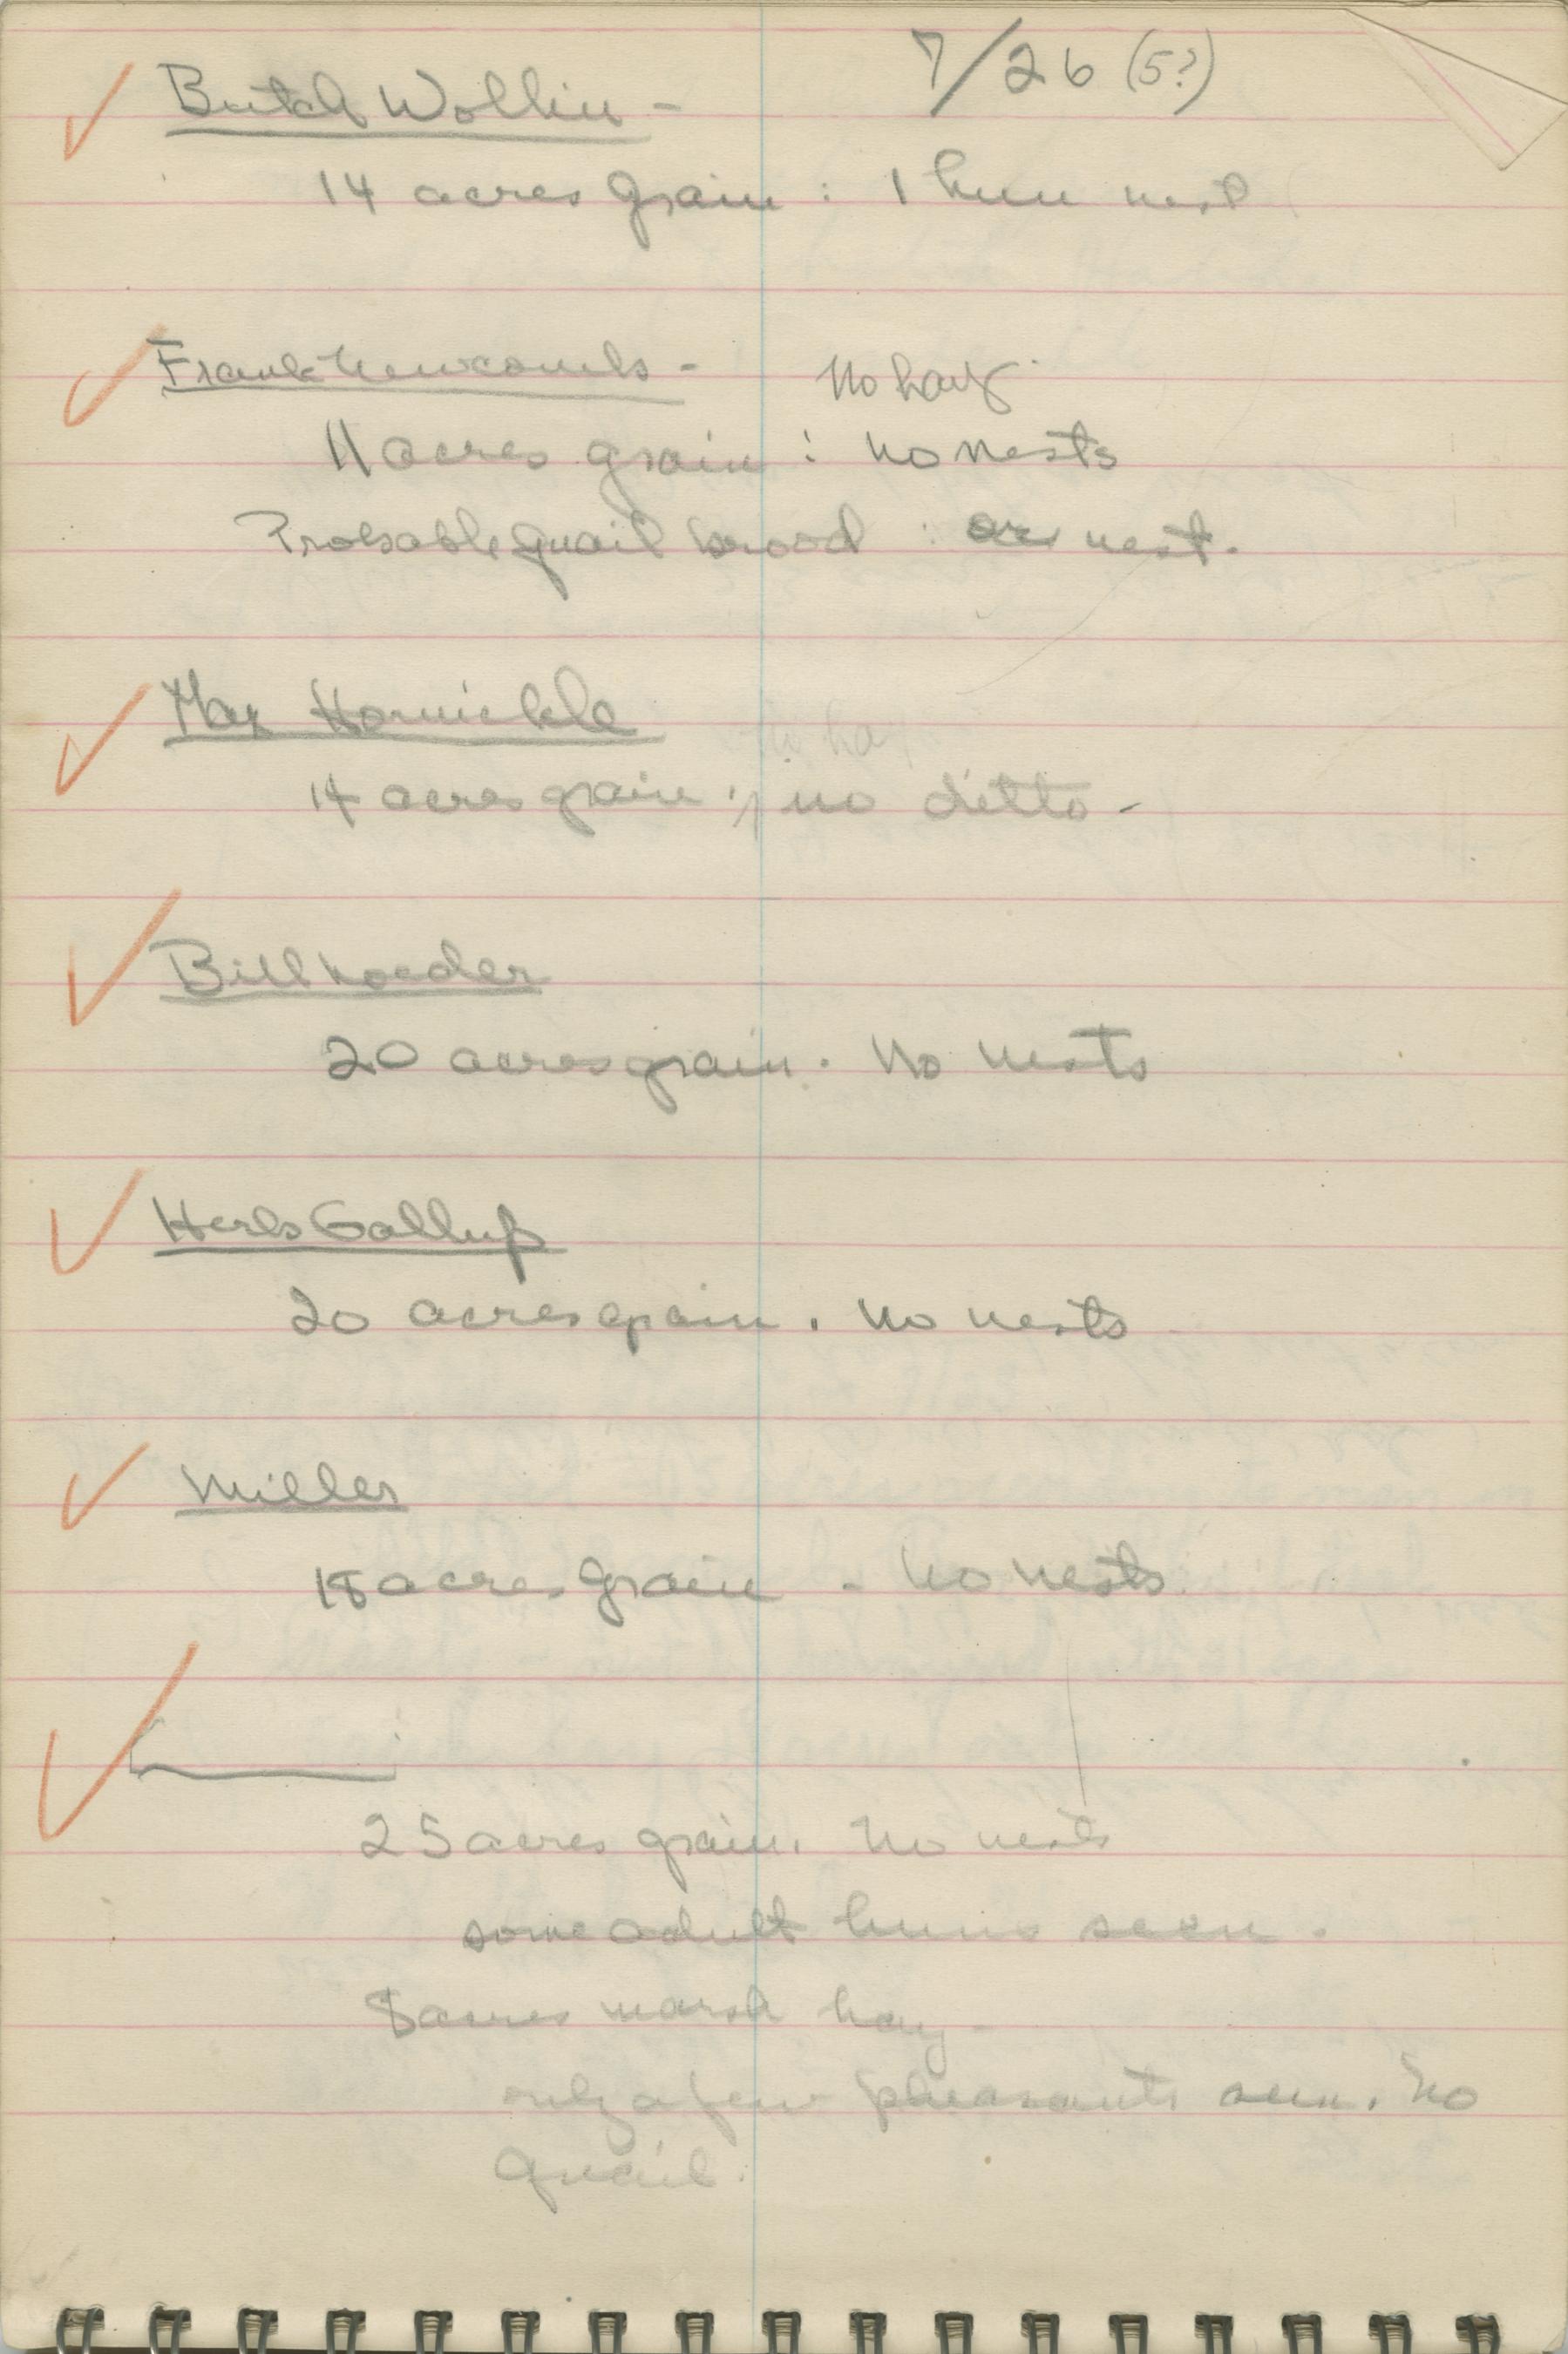 7/26 (5?)
Butch Wollin -
14 acres grain : 1 hun nest
Frank Newcomb - No hay
11 acres grain : no nests
Probable quail brood : or nest.
Max Hornickle
no hay
14 acres grain ; no ditto -
Bill
20 acres grain. No nests
Herb Gallup
20 acres grain. No nests
Miller
18 acres grain - No nests
25 acres grain. No nests
some adult huns seen.
8 acres marsh hay -
only a few pheasants seen. No
quail.